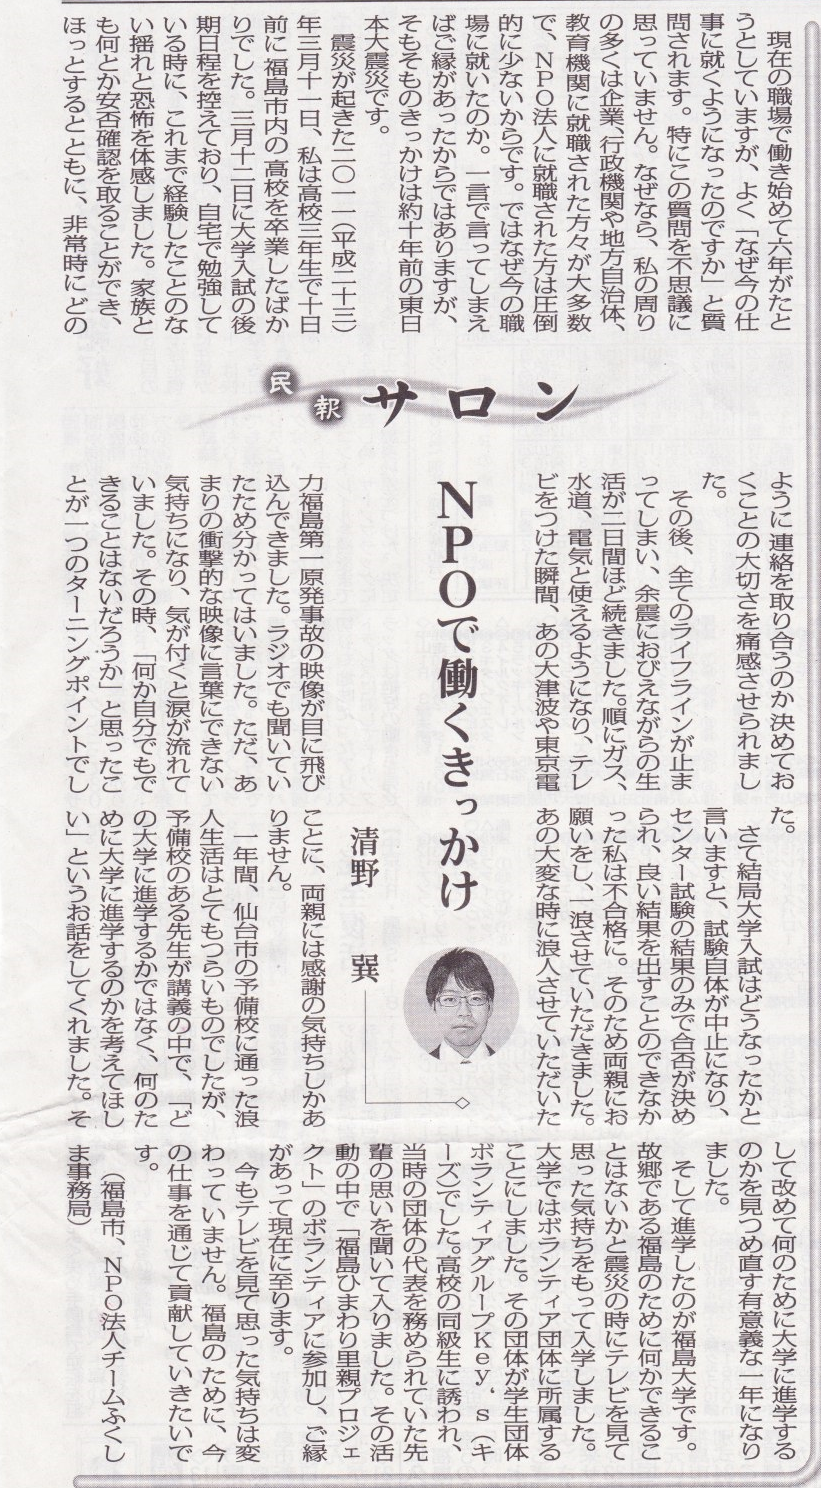 民報サロン
NPOで働くきっかけ
清野 巽
現在の職場で働き始めて六年がたと
うとしていますが、よく「なぜ今の仕
事に就くようになったのですか」と質
問されます。特にこの質問を不思議に
思っていません。なぜなら、私の周り
の多くは企業、行政機関や地方自治体、
教育機関に就職された方々が大多数
で、NPO法人に就職された方は圧倒
的に少ないからです。ではなぜ今の職
場に就いたのか。一言で言ってしまえ
ばご縁があったからではありますが、
そもそものきっかけは約十年前の東日
本大震災です。
震災が起きた二〇一一(平成二十三)
年三月十一日、私は高校三年生で十日
前に福島市内の高校を卒業したばか
りでした。三月十二日に大学入試の後
期日程を控えており、自宅で勉強して
いる時に、これまで経験したことのな
い揺れと恐怖を体感しました。家族と
も何とか安否確認を取ることができ、
ほっとするとともに、非常時にどの
ように連絡を取り合うのか決めてお
くことの大切さを痛感させられまし
た。
その後、全てのライフラインが止ま
ってしまい、余震におびえながらの生
活が二日間ほど続きました。順にガス、
水道、電気と使えるようになり、テレ
ビをつけた瞬間、あの大津波や東京電
力福島第一原発事故の映像が目に飛び
込んできました。ラジオでも聞いてい
たため分かってはいました。ただ、あ
まりの衝撃的な映像に言葉にできない
気持ちになり、気が付くと涙が流れて
いました。その時、「何か自分でもで
きることはないだろうか」と思ったこ
とが一つのターニングポイントでし
た。
さて結局大学入試はどうなったかと
言いますと、試験自体が中止になり、
センター試験の結果のみで合否が決め
られ、良い結果を出すことのできなか
った私は不合格に。そのため両親にお
願いをし、一浪させていただきました。
あの大変な時に浪人させていただいた
ことに、両親には感謝の気持ちしかあ
りません。
一年間、仙台市の予備校に通った浪
人生活はとてもつらいものでしたが、
予備校のある先生が講義の中で、「ど
の大学に進学するかではなく、何のた
めに大学に進学するのかを考えてほし
い」というお話をしてくれました。そ
して改めて何のために大学に進学する
のかを見つめ直す有意義な一年になり
ました。
そして進学したのが福島大学です。
故郷である福島のために何かできるこ
とはないかと震災の時にテレビを見て
思った気持ちをもって入学しました。
大学ではボランティア団体に所属する
ことにしました。その団体が学生団体
ボランティアグループKey's(キ
ーズ)でした。高校の同級生に誘われ、
当時の団体の代表を務められていた先
輩の思いを聞いて入りました。その活
動の中で「福島ひまわり里親プロジェ
クト」のボランティアに参加し、ご縁
があって現在に至ります。
今もテレビを見て思った気持ちは変
わっていません。福島のために、今
の仕事を通じて貢献していきたいで
す。
(福島市、NPO法人チームふくし
ま事務局)